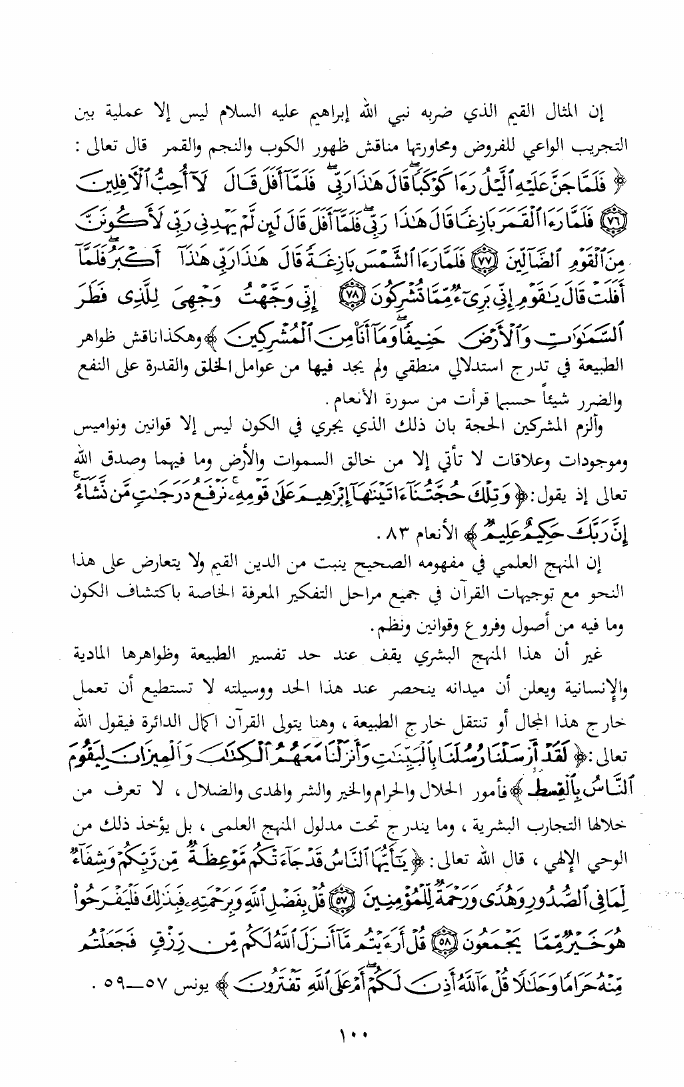 إن المثال القيم الذي ضربه نبي الله إبراهيم عليه السلام ليس إلا عملية بين
التجريب الواعي للفروض ومحاورتها مناقش ظهور الكوب والنجم والقمر قال تعالى :
﴿ فَلَمَّا جَنَّ عَلَيْهِ الَّيْلُ رَءَا كَوْكَبًا قَالَ هَٰذَا رَبِّي فَلَمَّا أَفَلَ قَالَ لَا أُحِبُّ الْأَفِلِينَ
٧٦ فَلَمَّا رَءَا الْقَمَرَ بَازِغًا قَالَ هَٰذَا رَبِّي فَلَمَّا أَفَلَ قَالَ لَئِن لَّمْ يَهْدِنِي رَبِّي لَأَكُونَنَّ
مِنَ الْقَوْمِ الضَّالِّينَ ٧٧ فَلَمَّا رَءَا الشَّمْسَ بَازِغَةً قَالَ هَٰذَا رَبِّي هَٰذَا أَكْبَرُ فَلَمَّا
أَفَلَتْ قَالَ يَٰقَوْمِ إِنِّي بَرِيءٌ مِّمَّا تُشْرِكُونَ ٧٨ إِنِّي وَجَّهْتُ وَجْهِيَ لِلَّذِي فَطَرَ
السَّمَٰوَٰتِ وَالْأَرْضَ حَنِيفًا وَمَا أَنَا مِنَ الْمُشْرِكِينَ ﴾ وهكذا ناقش ظواهر
الطبيعة في تدرج استدلالي منطقي ولم يجد فيها من عوامل الخلق والقدرة على النفع
والضرر شيئاً حسبما قرأت من سورة الأنعام .
وألزم المشركين الحجة بان ذلك الذي يجري في الكون ليس إلا قوانين ونواميس
وموجودات وعلاقات لا تأتي إلا من خالق السموات والأرض وما فيهما وصدق الله
تعالى إذ يقول : ﴿ وَتِلْكَ حُجَّتُنَا ءَاتَيْنَٰهَا إِبْرَٰهِيمَ عَلَىٰ قَوْمِهِ نَرْفَعُ دَرَجَٰتٍ مَّن نَّشَاءُ
إِنَّ رَبَّكَ حَكِيمٌ عَلِيمٌ ﴾ الأنعام ٨٣ .
إن المنهج العلمي في مفهومه الصحيح ينبت من الدين القيم ولا يتعارض على هذا
النحو مع توجيهات القرآن في جميع مراحل التفكير المعرفة الخاصة باكتشاف الكون
وما فيه من أصول وفروع وقوانين ونظم .
غير أن هذا المنهج البشري يقف عند حد تفسير الطبيعة وظواهرها المادية
والإنسانية ويعلن أن ميدانه ينحصر عند هذا الحد ووسيلته لا تستطيع أن تعمل
خارج هذا المجال أو تنتقل خارج الطبيعة ، وهنا يتولى القرآن اكمال الدائرة فيقول الله
تعالى : ﴿ لَقَدْ أَرْسَلْنَا رُسُلَنَا بِالْبَيِّنَٰتِ وَأَنزَلْنَا مَعَهُمُ الْكِتَٰبَ وَالْمِيزَانَ لِيَقُومَ
النَّاسُ بِالْقِسْطِ ﴾ فأمور الحلال والحرام والخير والشر والهدى والضلال ، لا تعرف من
خلالها التجارب البشرية ، وما يندرج تحت مدلول المنهج العلمي ، بل يؤخذ ذلك من
الوحي الإلهي ، قال الله تعالى : ﴿ يَٰأَيُّهَا النَّاسُ قَدْ جَاءَتْكُم مَّوْعِظَةٌ مِّن رَّبِّكُمْ وَشِفَاءٌ
لِّمَا فِي الصُّدُورِ وَهُدًى وَرَحْمَةٌ لِّلْمُؤْمِنِينَ ٥٧ قُلْ بِفَضْلِ اللَّهِ وَبِرَحْمَتِهِ فَبِذَٰلِكَ فَلْيَفْرَحُوا
هُوَ خَيْرٌ مِّمَّا يَجْمَعُونَ ٥٨ قُلْ أَرَءَيْتُم مَّا أَنزَلَ اللَّهُ لَكُم مِّن رِّزْقٍ فَجَعَلْتُم
مِّنْهُ حَرَامًا وَحَلَٰلًا قُلْ ءَاللَّهُ أَذِنَ لَكُمْ أَمْ عَلَى اللَّهِ تَفْتَرُونَ ﴾ يونس ٥٧ــ٥٩ .
١٠٠